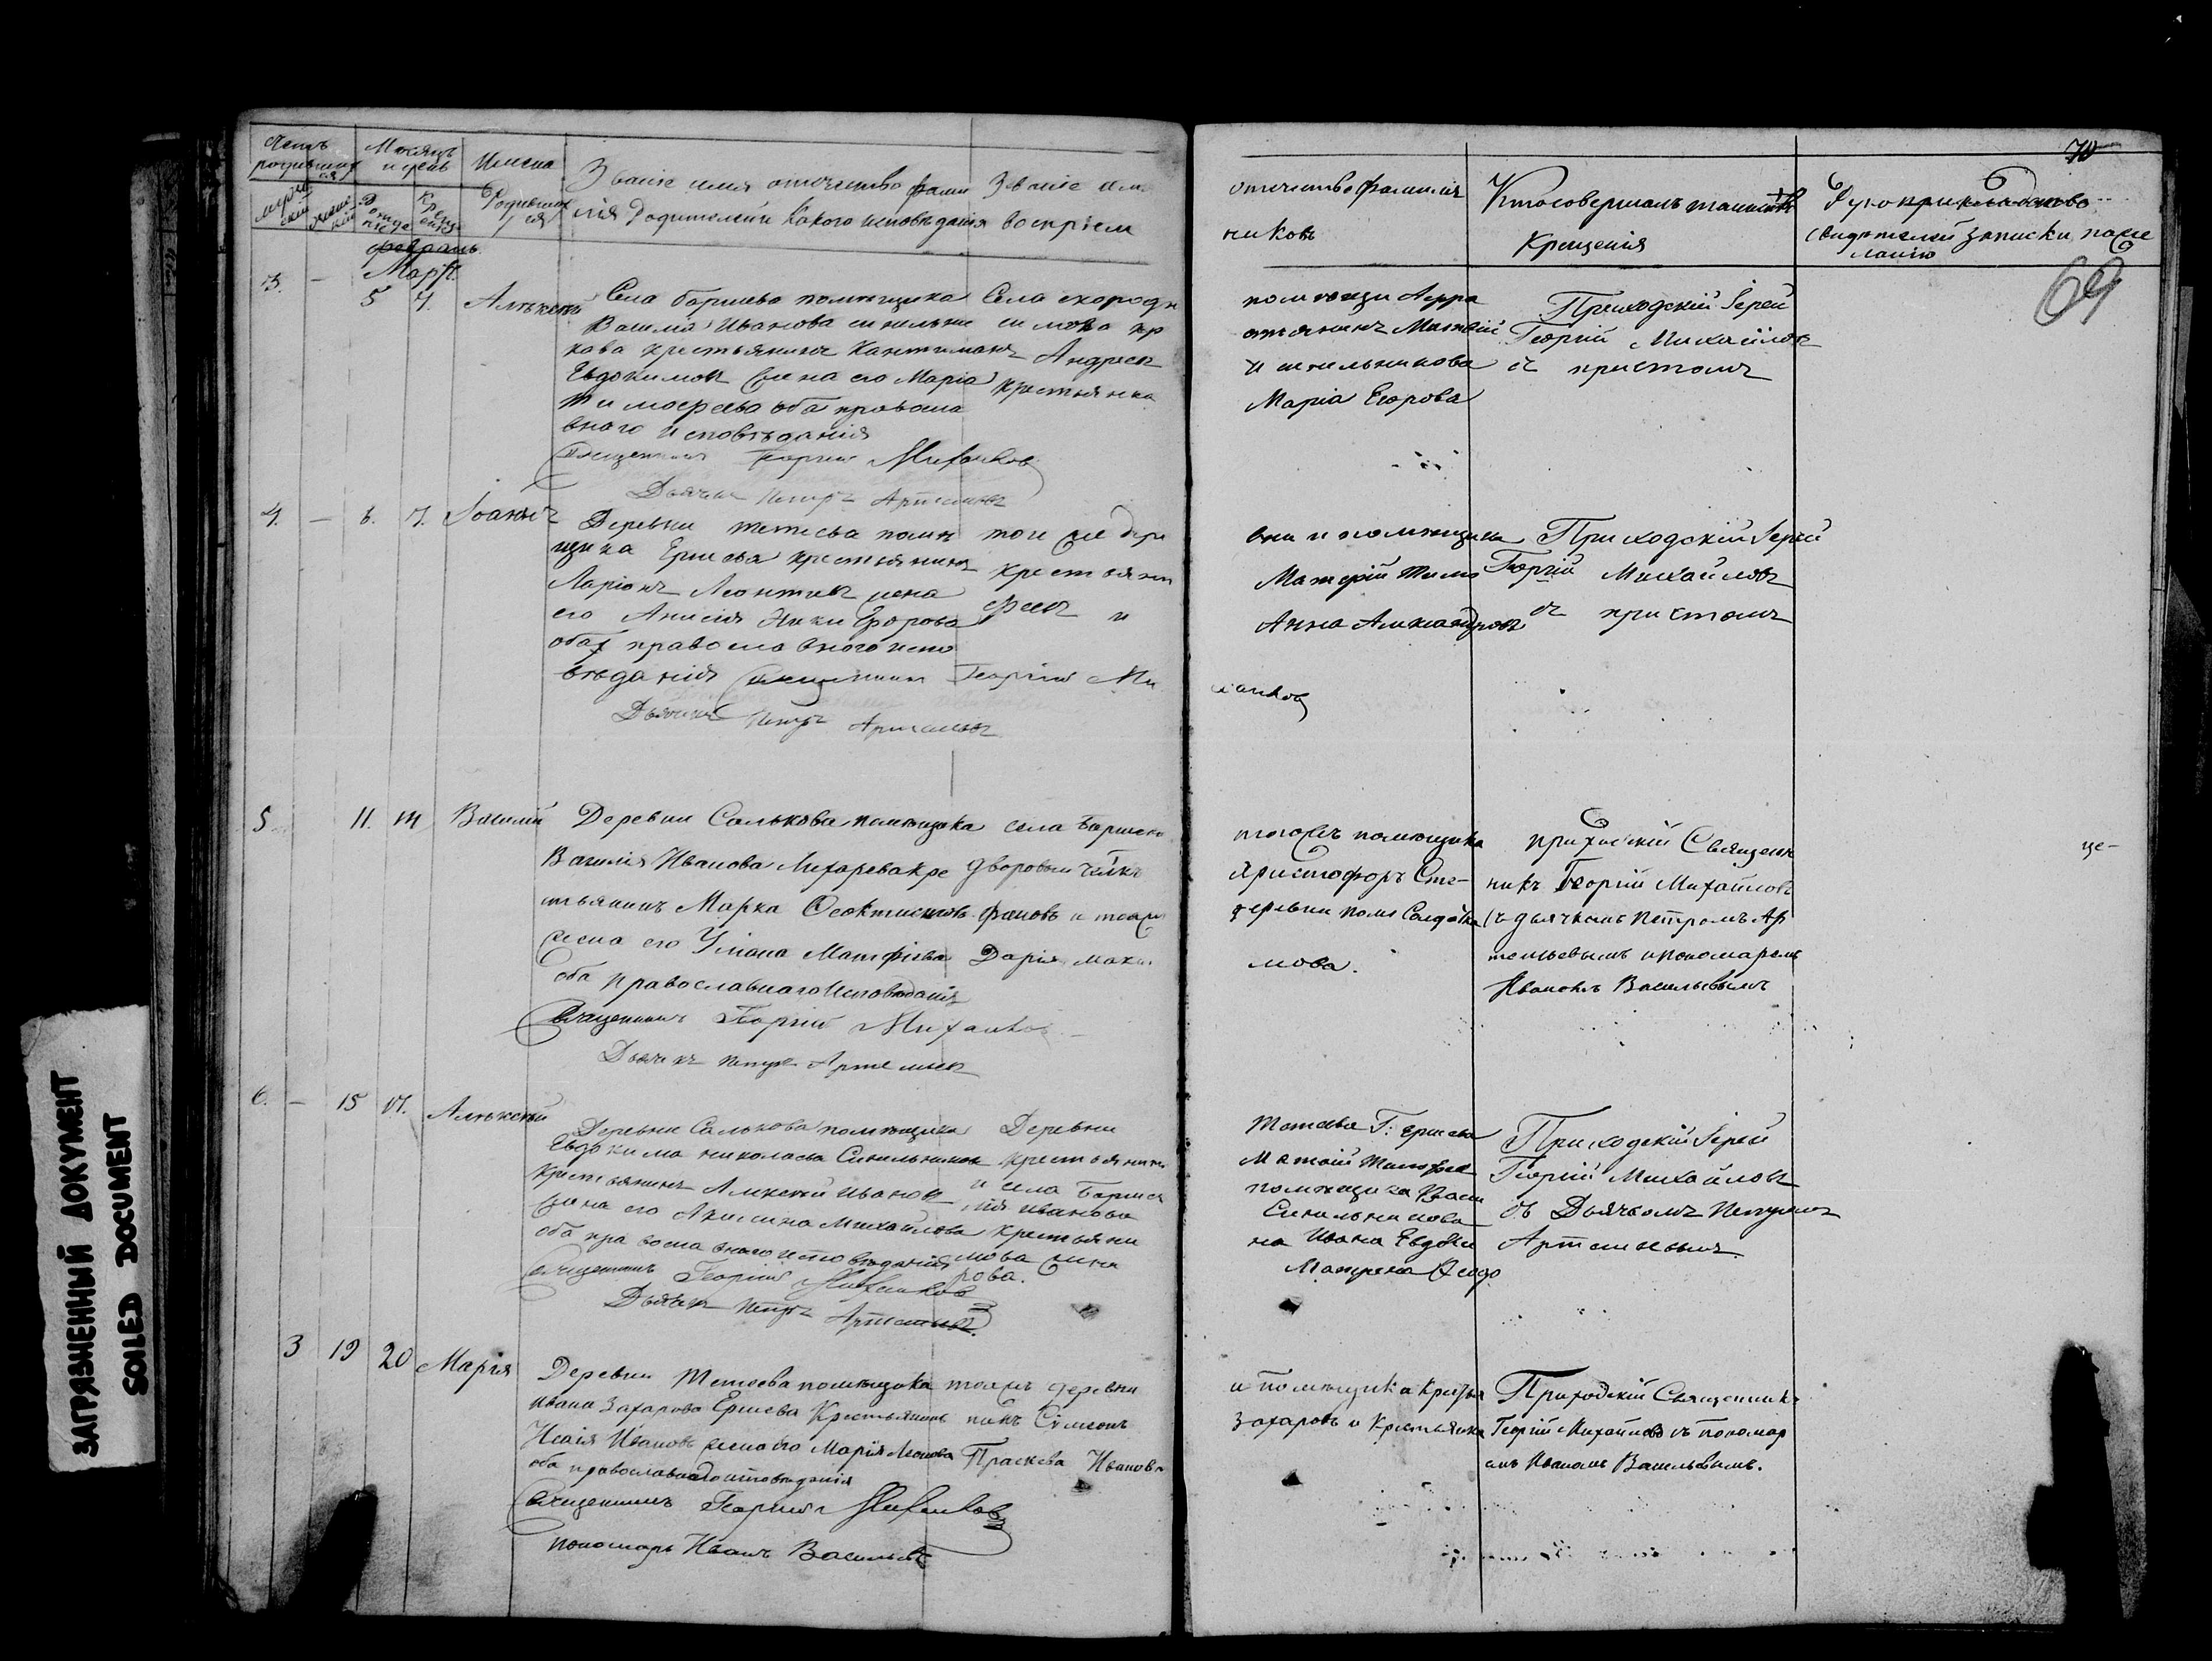 70
69
Счетъ родившихся
Мѣсяцъ и день
Имена Родившихся
Званіе имя отчество фами
лія Родителей и какого исповѣданія
Званіе имя
воспріем
отчество фамилія
никовъ
Кто совершалъ таинство
Крещенія
Рукоприкладство
свидѣтелей записки по же
ланію
февраль
Мартъ
3. – 5 7. Алѣксѣй
Села помѣщика
Василія Иванова синельни
кова крестьянинъ
Евдокимовъ жена его Марія
Тимофеева оба православ
внаго исповѣданія
Священникъ Георгій Михайлов
Дьячекъ Петръ Артемьев
Села
Андреев
Крестьянка
помѣщи
Матвій
и синельникова
Марія Егорова
Приходскій Іерей
Георгій Михайлов
съ причтомъ
4. – 6. 7. Іоаннъ
Деревни Тетевьа помѣ
щика Ершова крестьянинъ
Ларіонъ Леонтьев жена
его Анисія Никифорова
оба православнаго испо
вѣданія Священникъ Георгій Ми
хайлов
Дьячекъ Петръ Артемьев
той же дере
крестьянин
феев и
вни и помѣщика
Матфій Тимо
Анна Александрова
Приходскій Іерей
Георгій Михайловъ
съ причтомъ
5 11. 14 Василій
Деревни Салькова помѣщика
Василія Иванова Лихарева кре
стьянинъ Марка Феоктистовъ
жена его Уліана Матфіева
оба Православнаго Исповѣданія
Священникъ Георгій Михайлов
Дьячекъ Петръ Артемьев
села
дворовый челов
фановъ и тояж
Дарія мака
тогожъ помѣщика
Христофоръ Сте-
деревни поме
мова.
приходскій Священ
никъ Георгій Михайловъ
съ дьячкомъ Петромъ Ар
темьевымъ и пономаремъ
Иваномъ Васильевымъ
це-
6. – 15 17. Алѣксѣй
Деревни Салькова помѣщика
Евдокима николаева Синельников
Крестьянинъ Алексѣй Иванов
жена его Акилина Михайлова
оба православнаго исповѣданія
Священникъ Георгій Михайлов
Дьячекъ Петръ Артемьев.
Деревни
крестьянин
и села
лія Иванова
крестьяни
мова жена
рова.
Тетевьа Г. Ершова
Матвій
помѣщика Васи
Синельникова
на Ивана Евдоки
Матрена Феодо
Приходскій Іерей
Георгій Михайлов
съ Дьячкомъ Петромъ
Артемьевымъ
3 19 20 Марія
Деревни Тетева помѣщика
Ивана Захарова Ершева Крестьянинъ
Исаія Ивановъ жена его Марія
оба православнаго исповѣданія
Священникъ Георгій Михайлов
пономарь Иванъ Васильев
тояжъ деревни
нинъ Сѵмеонъ
Праскева Иванова
и помѣщика Крестья
Захаровъ и Крестьянка
Приходскій Священникъ
Георгій Михайловъ съ пономар
емъ Иваномъ Васильевымъ.
ЗАГРЯЗНЕННЫЙ ДОКУМЕНТ
SOILED DOCUMENT